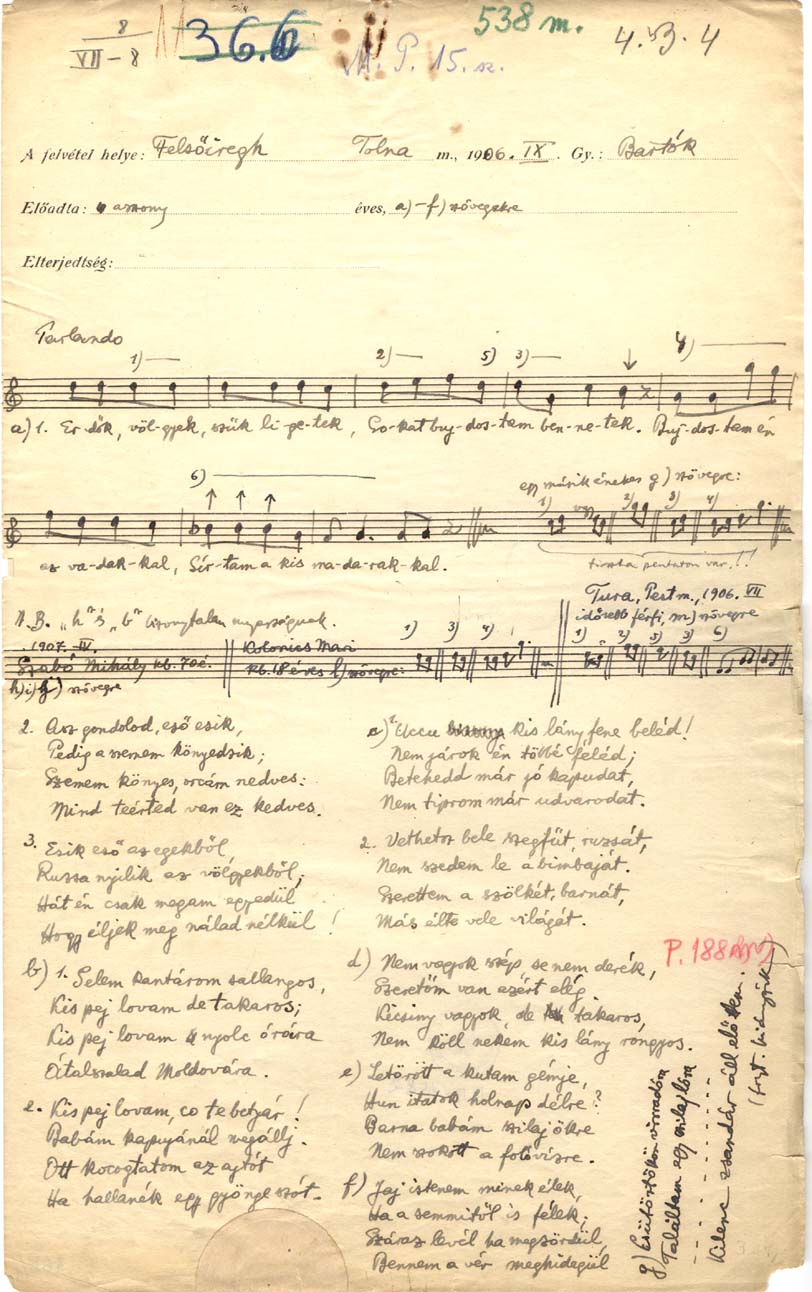 8
VII - 8
36.6
538 m.
M. P. 15. sz.
4. 3. 4
A felvétel helye: Felsőiregh Tolna m., 1906. IX. Gy.: Bartók
Előadta: asszony éves, a)-f) szövegekre
Elterjedtség:
Parlando
1) 2) 5) 3) 4)
a) 1. Er-dők, völ-gyek, szük li-ge-tek, So-kat buj-dos-tam ben-ne-tek. Buj-dos-tam én
6)
egy másik énekes g) szövegre:
1) vagy 2) 3) 4)
az va-dak-kal, Sír-tam a kis ma-da-rak-kal.
tiszta pentaton var.!!
N.B. „h" s „b" bizonytalan
Tura, Pest m., 1906. VII
idősebb férfi, m) szövegre
1907. IV.
Szabó Mihály kb. 70 é.
h) i) szövegre
Kolorics Mari
kb. 18 éves l) szövegre:
1) 3) 4)
1) 2) 5) 3) 6)
2. Asz gondolod, eső esik,
Pedig a szemem könyedzik;
Szemem könyes, orcám nedves:
Mind teérted van ez kedves.
3. Esik eső az egekből,
Russa nyilik az völgyekből,
Hát én csak magam egyedül
Hogy éljek meg nálad nélkül!
b) 1. Selem kantárom sallangos,
Kis pej lovam de takaros;
Kis pej lovam nyolc órára
Átalszalad Moldovára.
2. Kis pej lovam, co te betyár!
Babám kapujánál megállj.
Ott kocogtatom az ajtót
Ha hallanék egy gyönge szót.
c) 1. Uccu kis lány, fene beléd!
Nem járok én többé feléd;
Betehedd már jó kapudat,
Nem tiprom már udvarodat.
2. Vethetsz bele szegfüt, ruzsát,
Nem szedem le a bimbaját.
Szerettem a szölkét, barnát,
Más élte vele világát.
d) Nem vagyok szép se nem derék,
Szeretőm van azért elég.
Kicsiny vagyok, de takaros,
Nem köll nekem kis lány rongyos.
e) Letörött a kutam gémje,
Hun itatok holnap délre?
Barna babám szilaj ökre
Nem szokott a folóvízre.
f) Jaj istenem minek élek,
Ha a semmitől is félek;
Száraz levél ha megzördül,
Bennem a vér meghidegül
P. 188
g) Csütörtökön virradóra
Találtam egy szilaj lóra
Kilenc zsandár áll előttem.